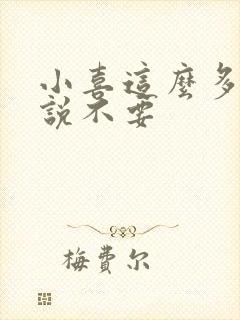 小喜這麼多
說不要
梅費尔